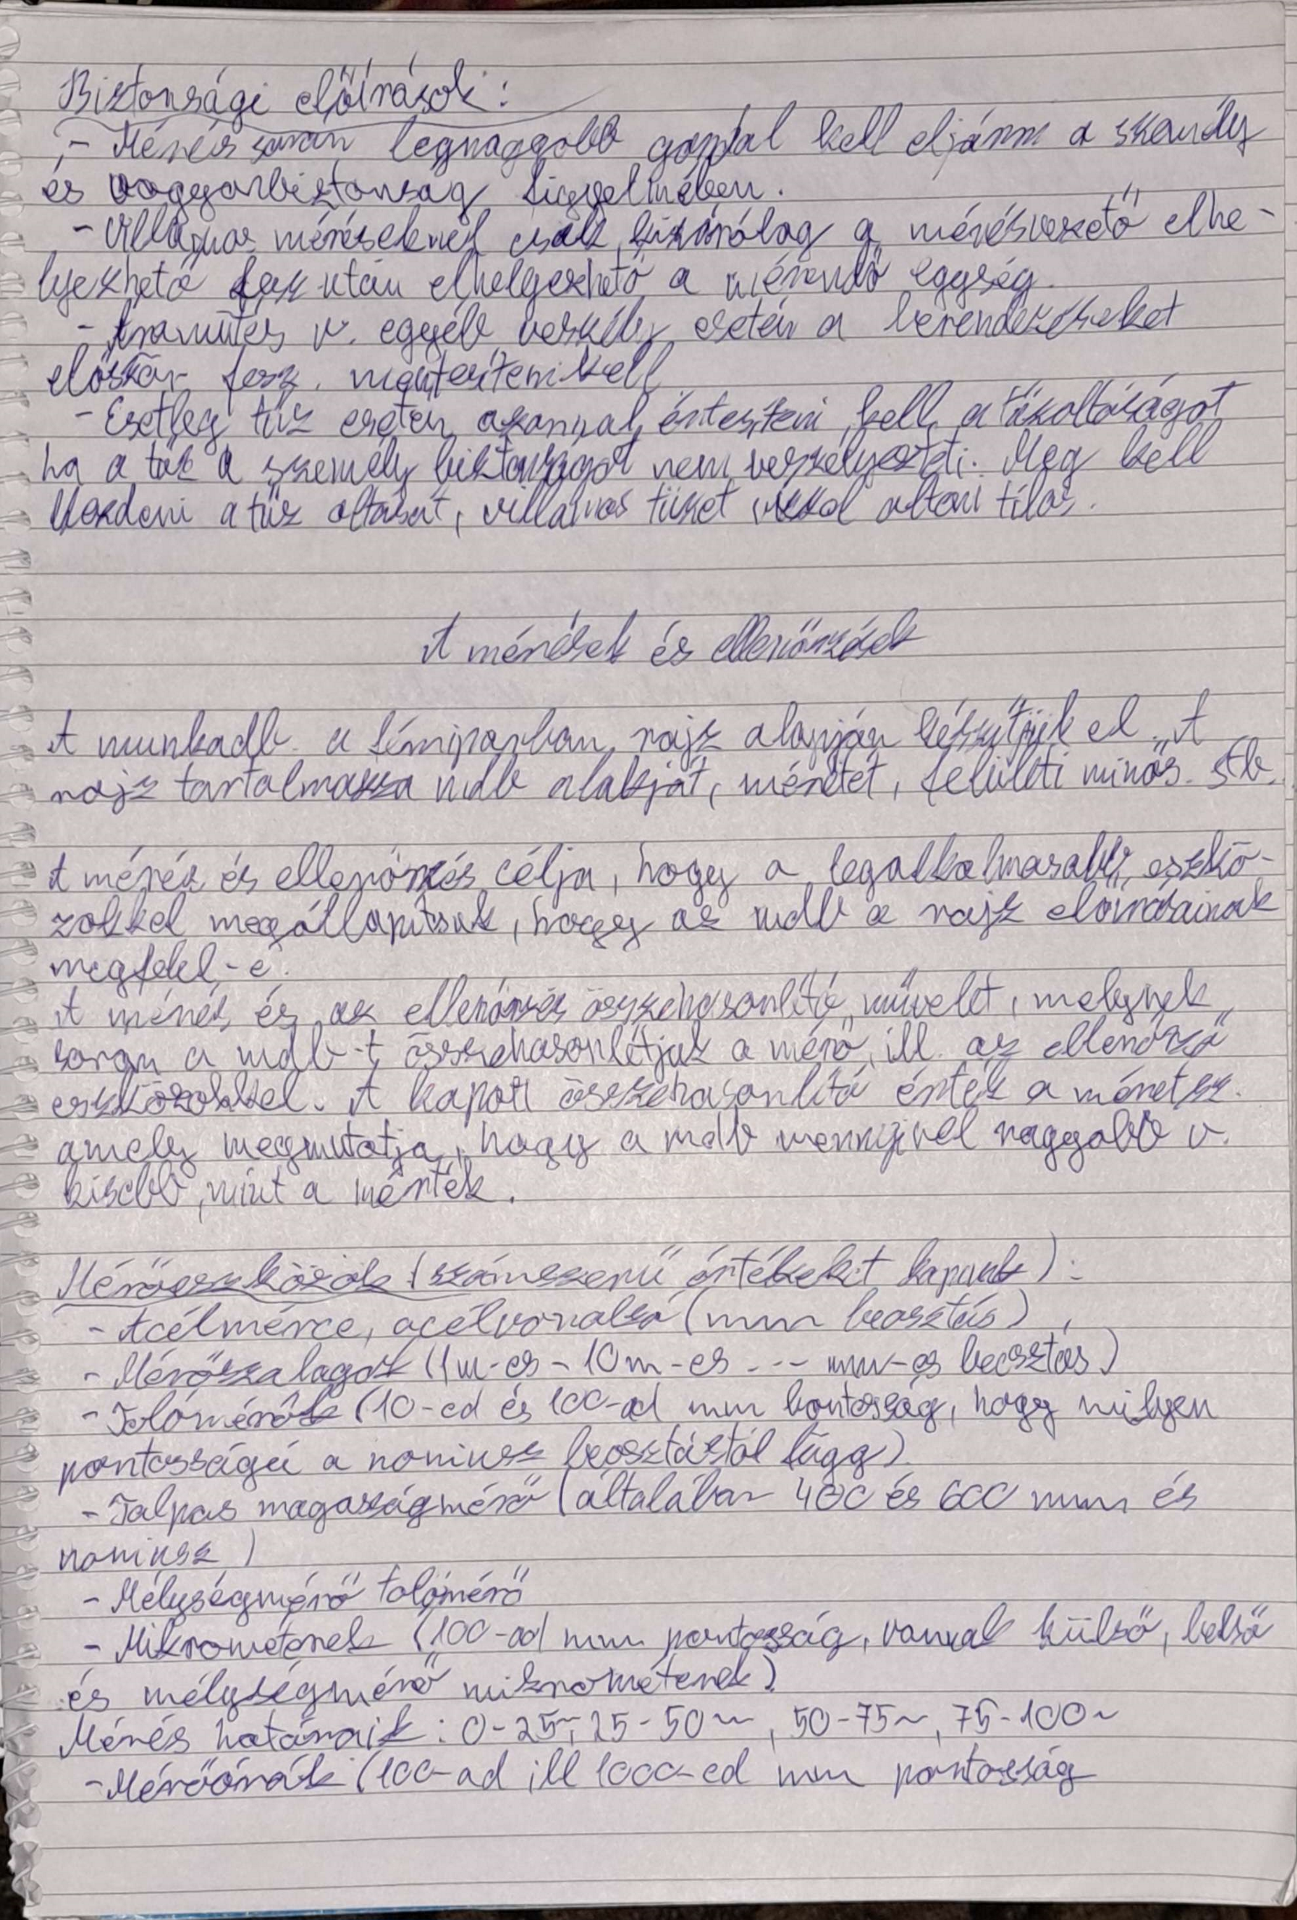 Biztonsági előírások:
- Mérés során legnagyobb gondal kell eljárni a személy
és vagyonbiztonság figyelmében.
- Villamos méréseknél csak kizárólag a mérésvezető elhe-
lyezhető Ezután elhelyezhető a mérendő egység.
- Áramütés v. egyéb veszély esetén a berendezéseket
először fesz. mentesíteni kell
- Esetleg tűz esetén azonnal értesíteni kell a tűzoltóságot
ha a tűz a személy biztonságot nem veszélyezteti. Meg kell
kezdeni a tűz oltását, villamos tüzet vízzel oltani tilos.
A mérések és ellenőrzések
A munkadb. a fémiparban rajz alapján készítjük el. A
rajz tartalmazza mdb alakját, méretét, felületi minős. stb.
A mérés és ellenőrzés célja, hogy a legalkalmasabb eszkö-
zökkel megállapítsuk, hogy az mdb a rajz előírásainak
megfelel-e.
A mérés és az ellenőrzés összehasonlító művelet, melynek
során a mdb-t összehasonlítjuk a mérő, ill. az ellenőrző
eszközökkel. A kapott összehasonlító érték a méretsz.
amely megmutatja, hogy a mdb mennyivel nagyobb v.
kisebb, mint a mérték.
Mérőeszközök (számszerű értékeket kapunk):
- Acélmérce, acélvonalzó (mm beosztás),
- Mérőszalagok (1m-es - 10m-es --- mm-es beosztás)
- Tolómérők (10-ed és 100-ad mm pontosság, hogy milyen
pontosságú a noniusz beosztástól függ).
- Talpas magasságmérő (általában 400 és 600 mm és
noniusz)
- Mélységmérő tolómérő
- Mikrométerek (100-ad mm pontosság, vannak külső, belső
és mélységmérő mikrométerek)
Mérés határaik: 0-25~, 25-50~, 50-75~, 75-100~
- Mérőórák (100-ad ill 1000-ed mm pontosság